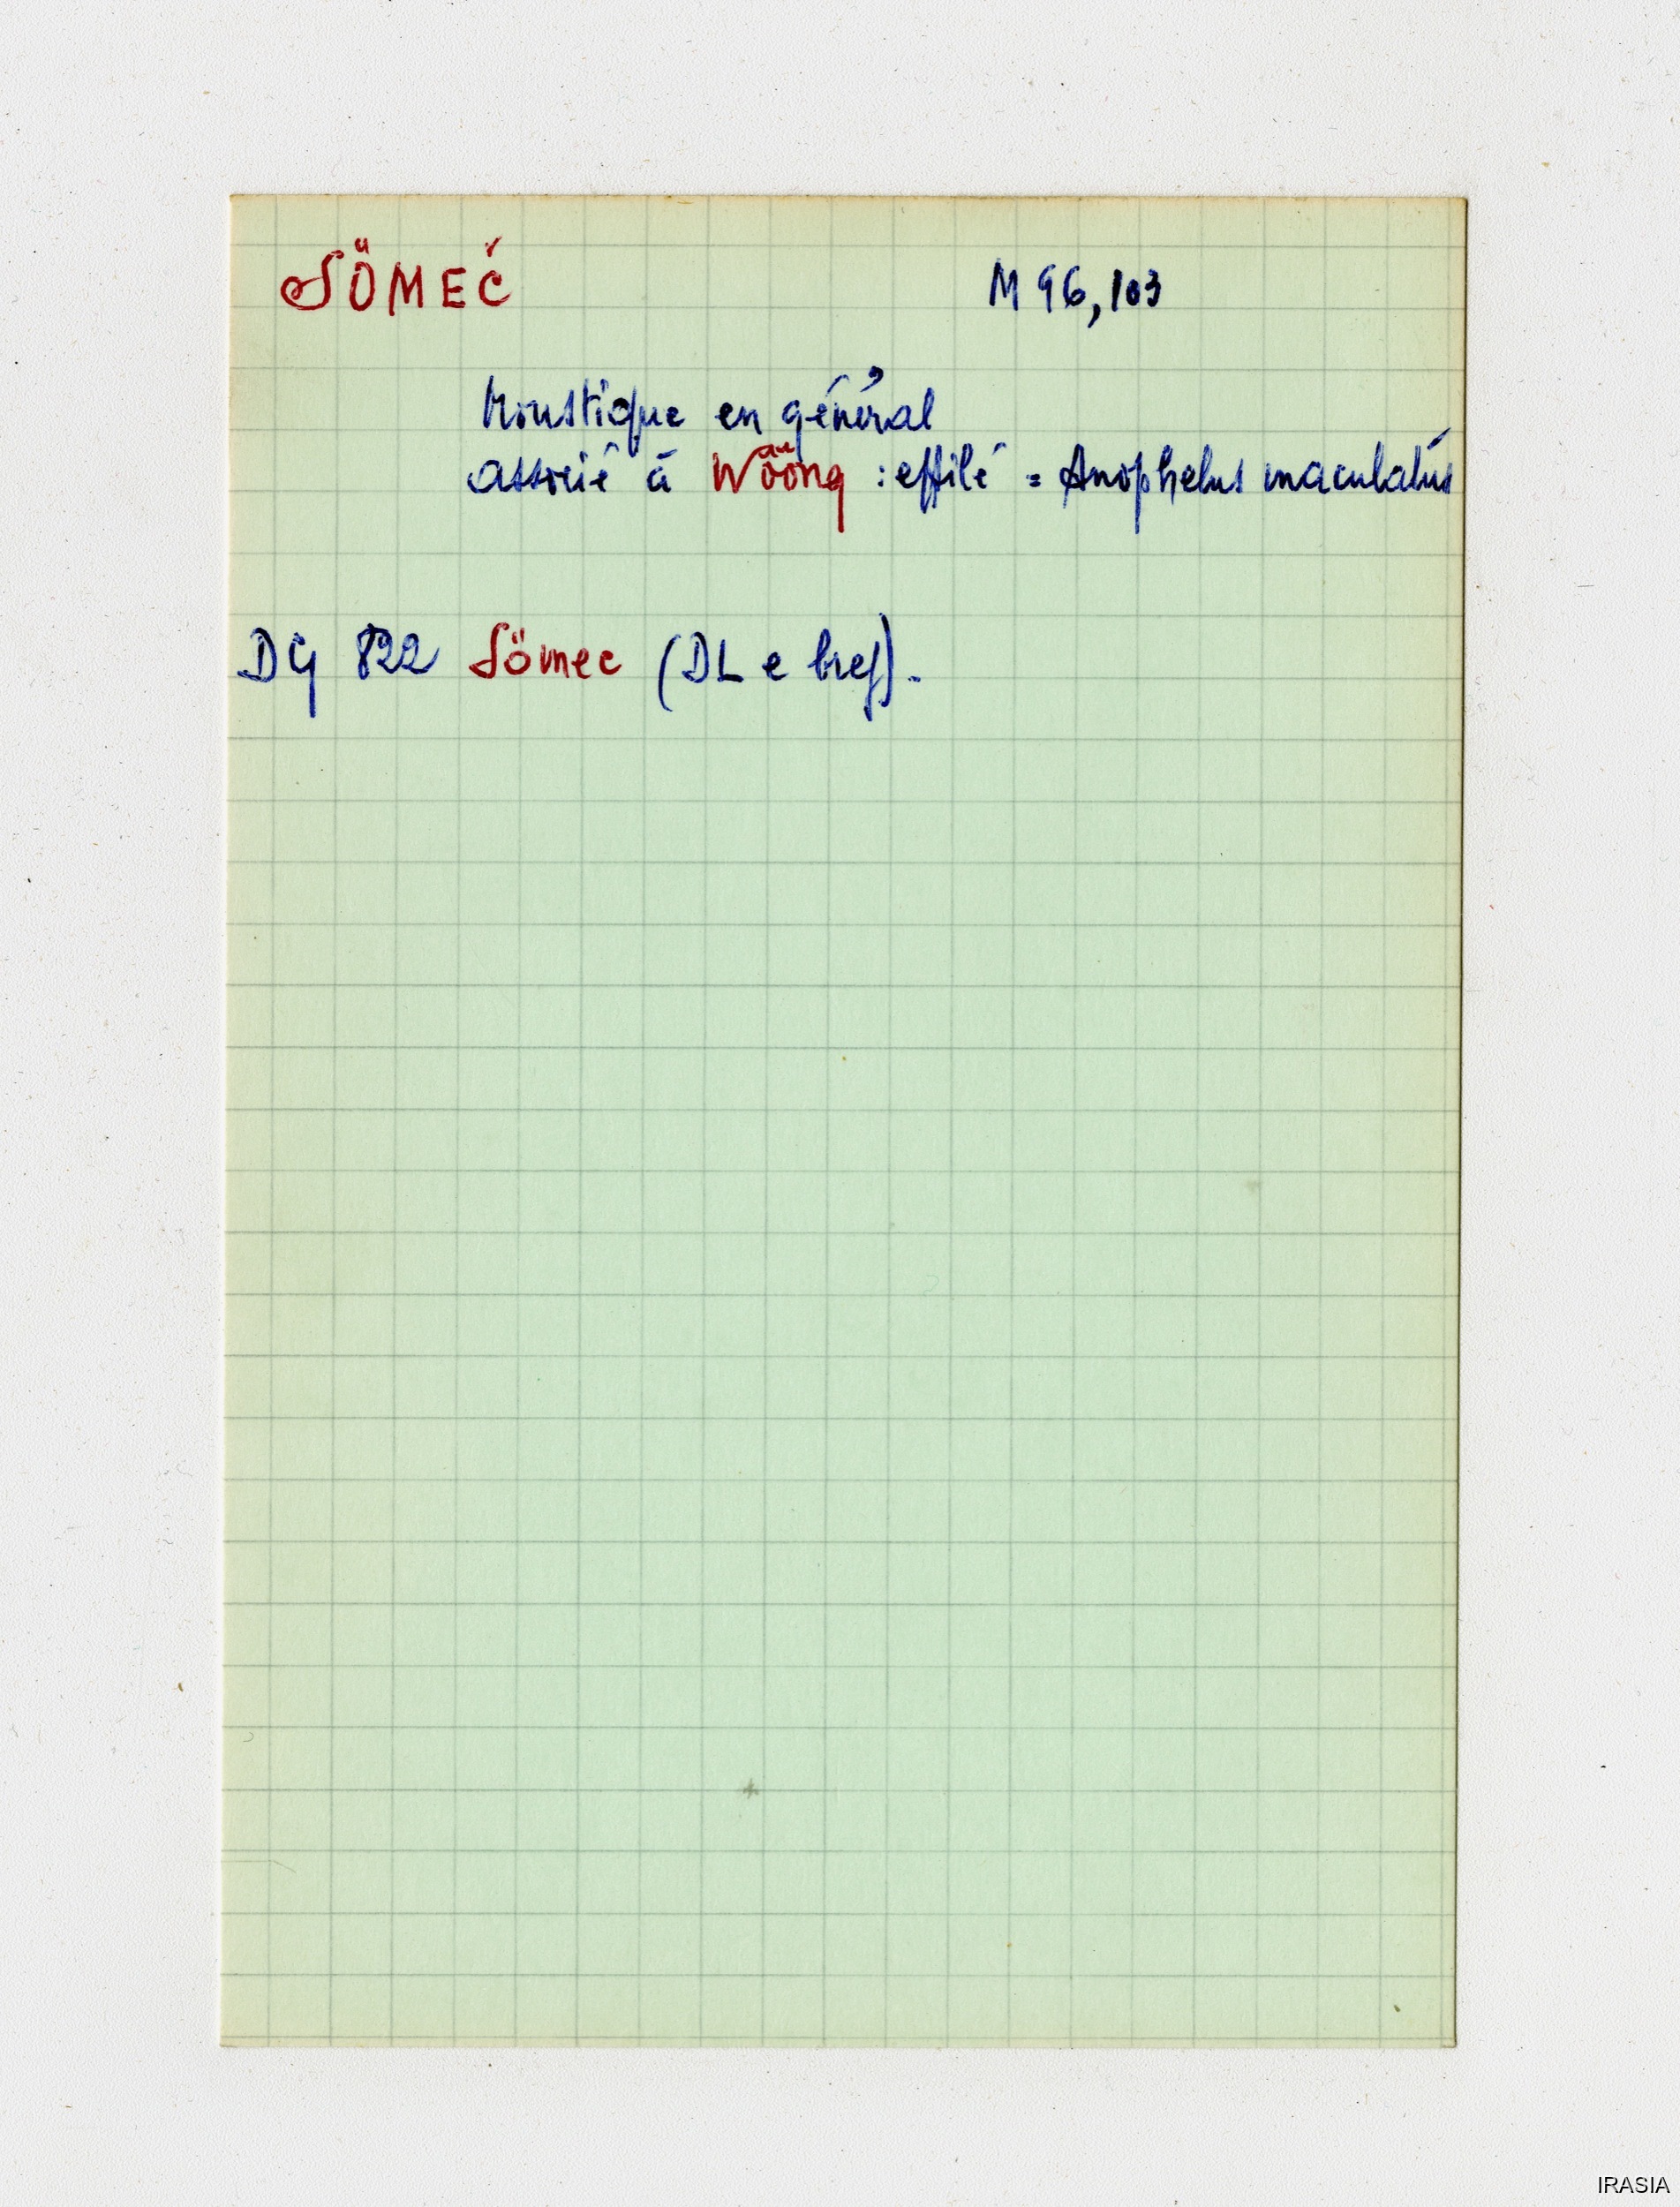 SÖMEČ M 96,103
Moustique en général
associé à Wööng : effilé = Anophelus maculatus
DG 822 Sömec (DL e bref).
IRASIA